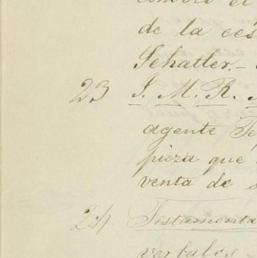 de la ces
Schatler_
23 J. M. R.
agente Te
pieza que
venta de s
24 Testamenta
verbales